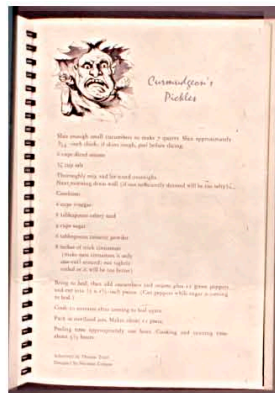 Curmudgeon's
Pickles
Slice enough small cucumbers to make 7 quarts. Slice approximately
inch thick; if skins tough, peel before slicing.
6 cups sliced onions
cup salt
Thoroughly mix and let stand overnight.
Next morning drain well. (if not sufficiently drained will be too salty).
Combine:
6 cups vinegar
tablespoons celery seed
cups sugar
tablespoons turmeric powder
inches of stick cinnamon
(make sure cinnamon is only
one-half around; not tightly
rolled or it will be too bitter)
Bring to boil, then add cucumbers and onions plus 12 green peppers
and cut into inch pieces. (Cut peppers while sugar is coming
to boil.)
Cook 20 minutes after coming to boil again.
Pack in sterilized jars. Makes about 12 pints.
Peeling time approximately one hour. Cooking and canning time
about hours.
Submitted by